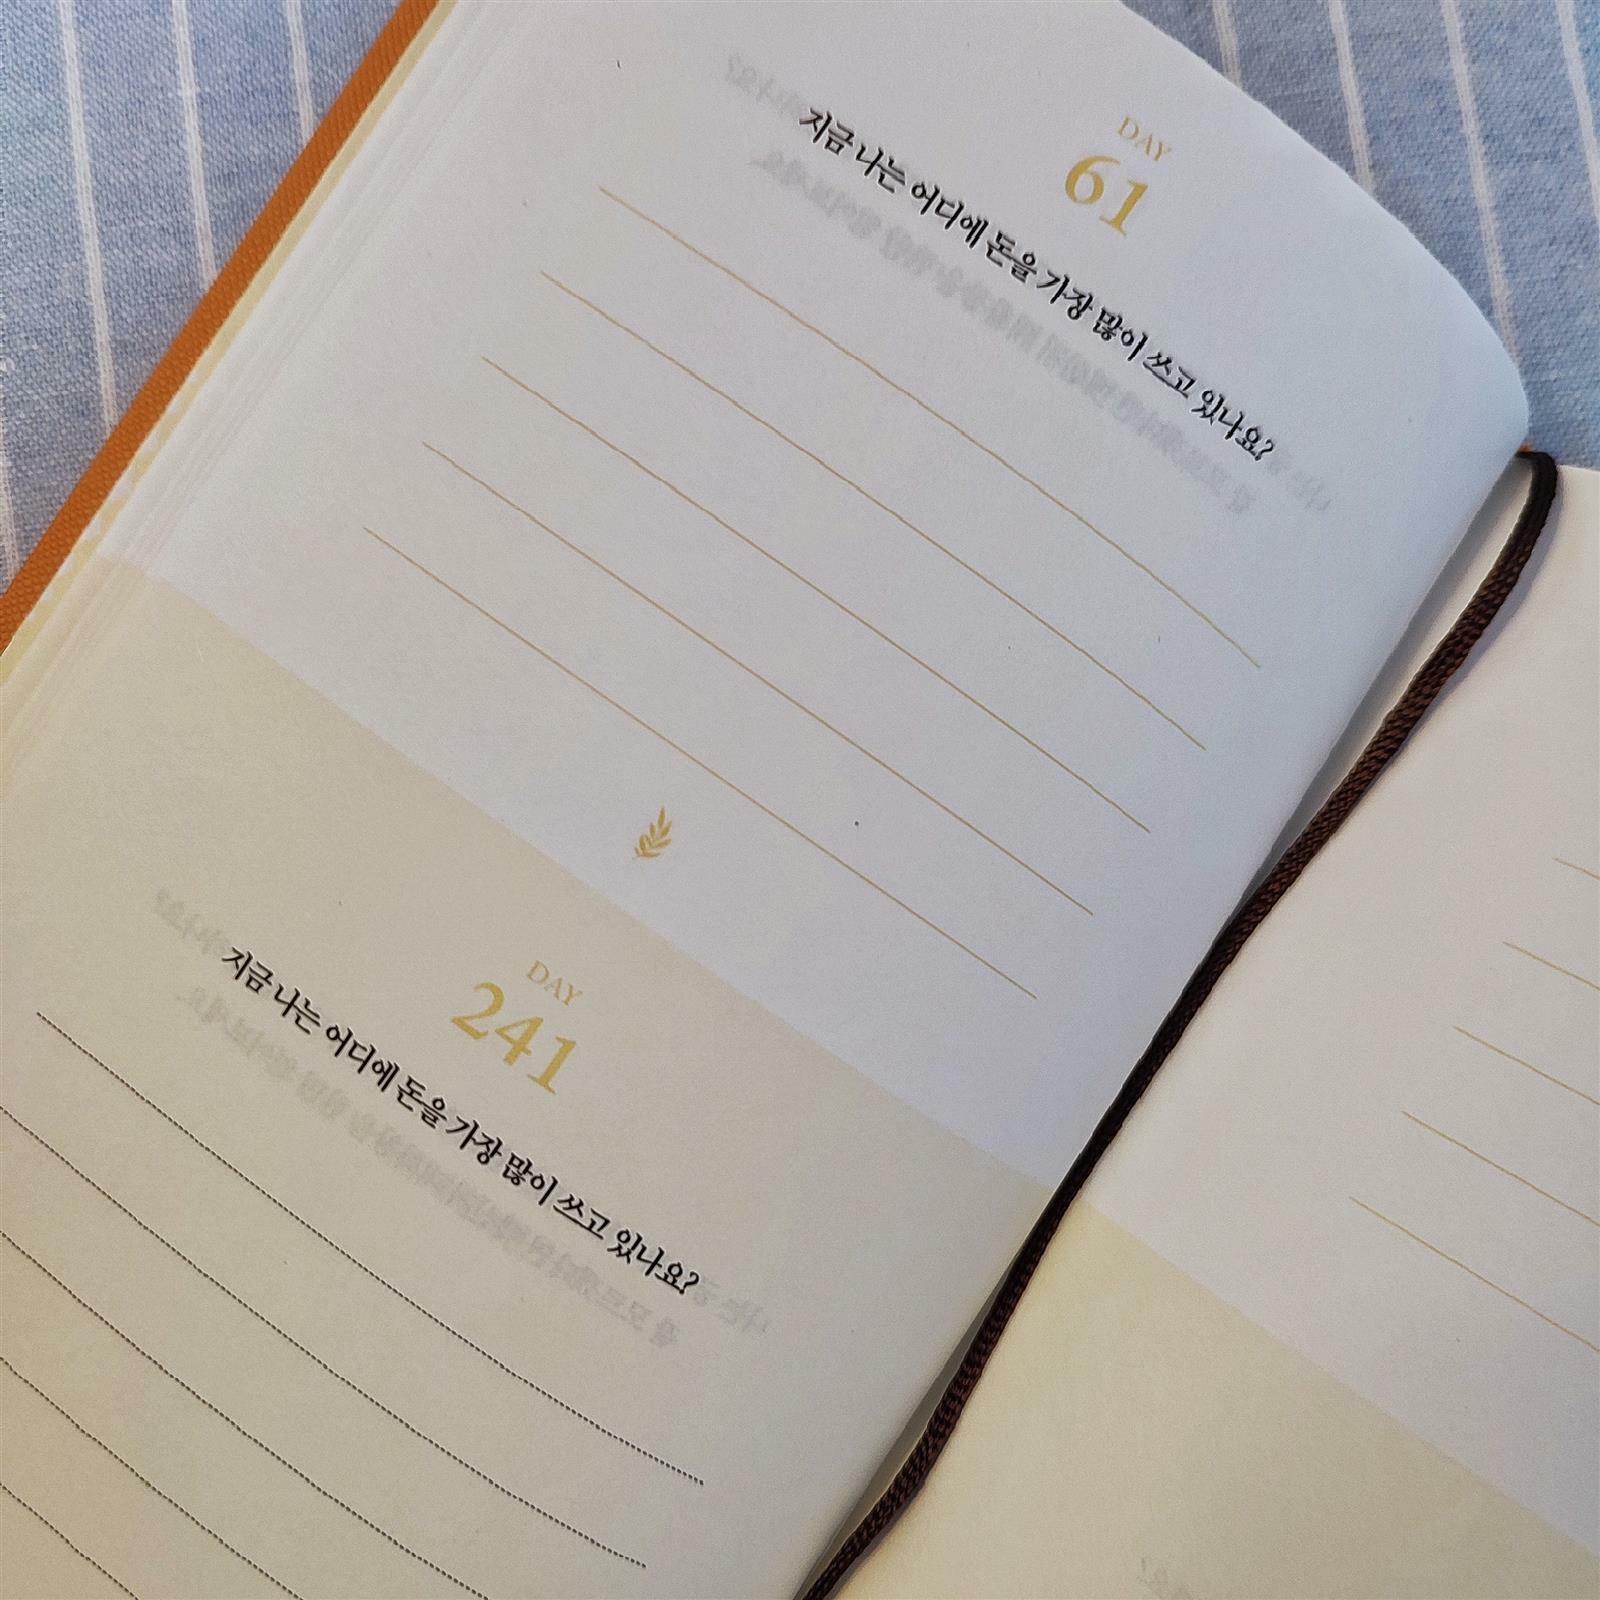 DAY
61
지금 나는 어디에 돈을 가장 많이 쓰고 있나요?
DAY
241
지금 나는 어디에 돈을 가장 많이 쓰고 있나요?